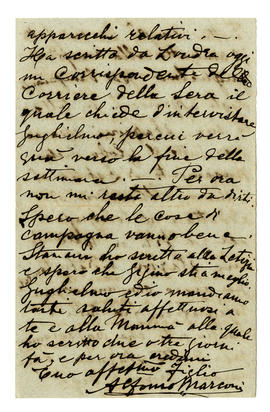 apparecchi relativi. —
Ha scritto da Londra oggi
un Corrispondente del
Corriere della Sera il
quale chiede d'intervistare
Guglielmo, percui verrà
qua verso la fine della
settimana. — Per ora
non mi resta altro da dirti.
Spero che le cose di
campagna vanno bene.
Stamani ho scritto alla Letizia
e spero che Gigino stia meglio
Guglielmo ed io mandiamo
tanti saluti affettuosi a
te e alla Mamma alla quale
ho scritto due o tre giorni
fà, e per ora credimi
tuo affettivo figlio
Alfonso Marconi